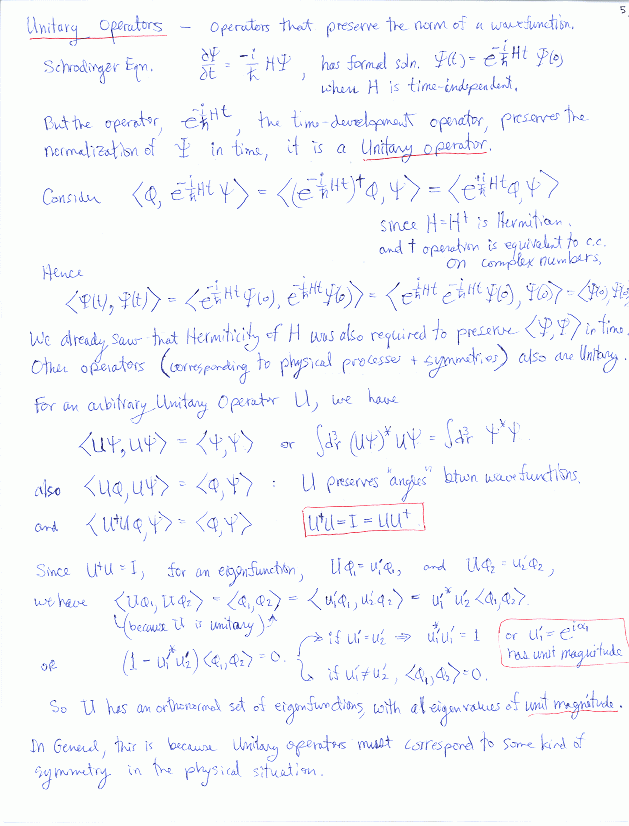 5
Unitary Operators — Operators that preserve the norm of a wavefunction.
Schrodinger Eqn. ∂Ψ/∂t = -i/ħ HΨ , has formal soln. Ψ(t) = e^{-i/ħ Ht} Ψ(0)
where H is time-independent.
But the operator, e^{-i/ħ Ht}, the time-development operator, preserves the
normalization of Ψ in time, it is a Unitary operator.
Consider ⟨φ, e^{-i/ħ Ht} ψ⟩ = ⟨(e^{-i/ħ Ht})† φ, ψ⟩ = ⟨e^{+i/ħ Ht} φ, ψ⟩
since H=H† is Hermitian.
and † operation is equivalent to c.c.
on complex numbers,
Hence
⟨Ψ(t), Ψ(t)⟩ = ⟨e^{-i/ħ Ht} Ψ(0), e^{-i/ħ Ht} Ψ(0)⟩ = ⟨e^{+i/ħ Ht} e^{-i/ħ Ht} Ψ(0), Ψ(0)⟩ = ⟨Ψ(0), Ψ(0)⟩
We already saw that Hermiticity of H was also required to preserve ⟨Ψ,Ψ⟩ in time.
Other operators (corresponding to physical processes + symmetries) also are Unitary.
For an arbitrary Unitary Operator U, we have
⟨Uψ, Uψ⟩ = ⟨ψ, ψ⟩ or ∫d³r (Uψ)* Uψ = ∫d³r ψ*ψ.
also ⟨Uφ, Uψ⟩ = ⟨φ, ψ⟩ : U preserves "angles" btwn wavefunctions.
and ⟨U†Uφ, ψ⟩ = ⟨φ, ψ⟩ U†U = I = UU†
Since U†U = I, for an eigenfunction, Uφ₁ = u₁'φ₁, and Uφ₂ = u₂'φ₂,
we have ⟨Uφ₁, Uφ₂⟩ = ⟨φ₁, φ₂⟩ = ⟨u₁'φ₁, u₂'φ₂⟩ = u₁'* u₂' ⟨φ₁, φ₂⟩.
(because U is unitary)
OR (1 - u₁'* u₂') ⟨φ₁, φ₂⟩ = 0. if u₁' = u₂' ⇒ u₁'* u₁' = 1 or u₁' = e^{iα₁}
has unit magnitude
if u₁' ≠ u₂', ⟨φ₁, φ₂⟩ = 0.
So U has an orthonormal set of eigenfunctions, with all eigenvalues of unit magnitude.
In General, this is because Unitary operators must correspond to some kind of
symmetry in the physical situation.